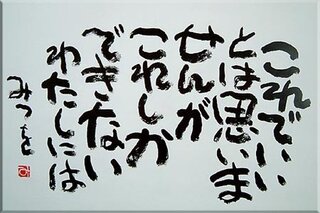 これでいい
とは思いま
せんが
これしか
できない
わたしには
みつを